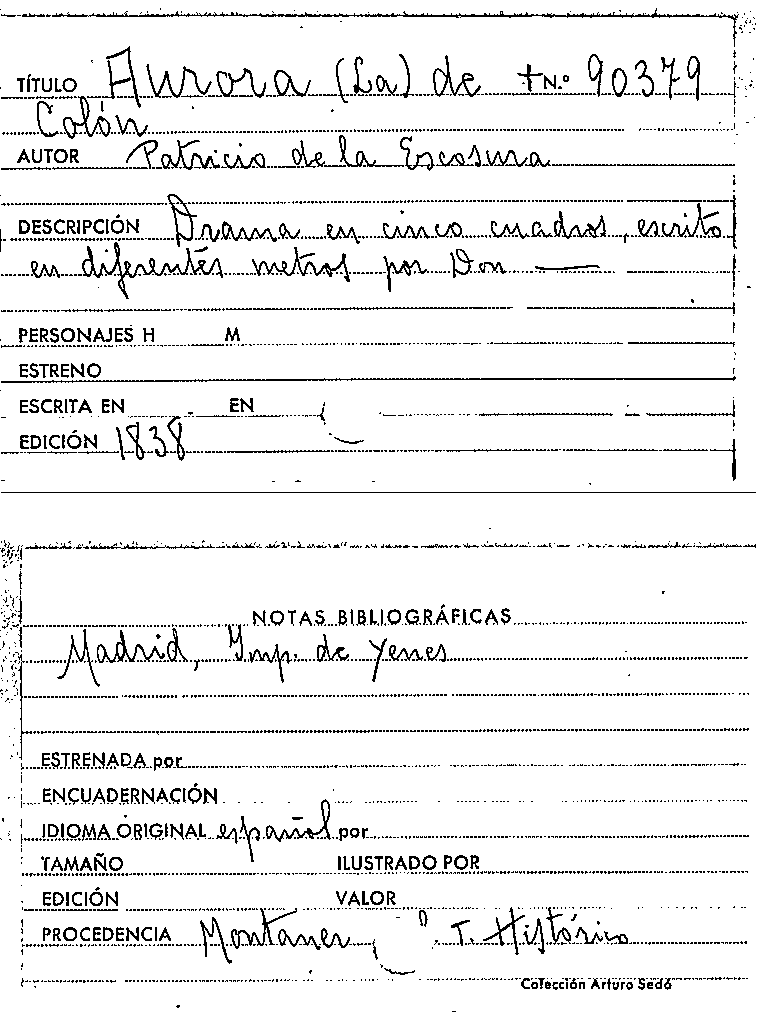 TÍTULO Aurora (La) de + N.º 90379
Colón
AUTOR Patricio de la Escosura
DESCRIPCIÓN Drama en cinco cuadros, escrito
en diferentes metros por Don —
PERSONAJES H M
ESTRENO
ESCRITA EN EN
EDICIÓN 1838
NOTAS BIBLIOGRÁFICAS
Madrid, Imp. de Yenes
ESTRENADA por
ENCUADERNACIÓN
IDIOMA ORIGINAL español por
TAMAÑO ILUSTRADO POR
EDICIÓN VALOR
PROCEDENCIA Montaner T. Histórico
Colección Arturo Sedó